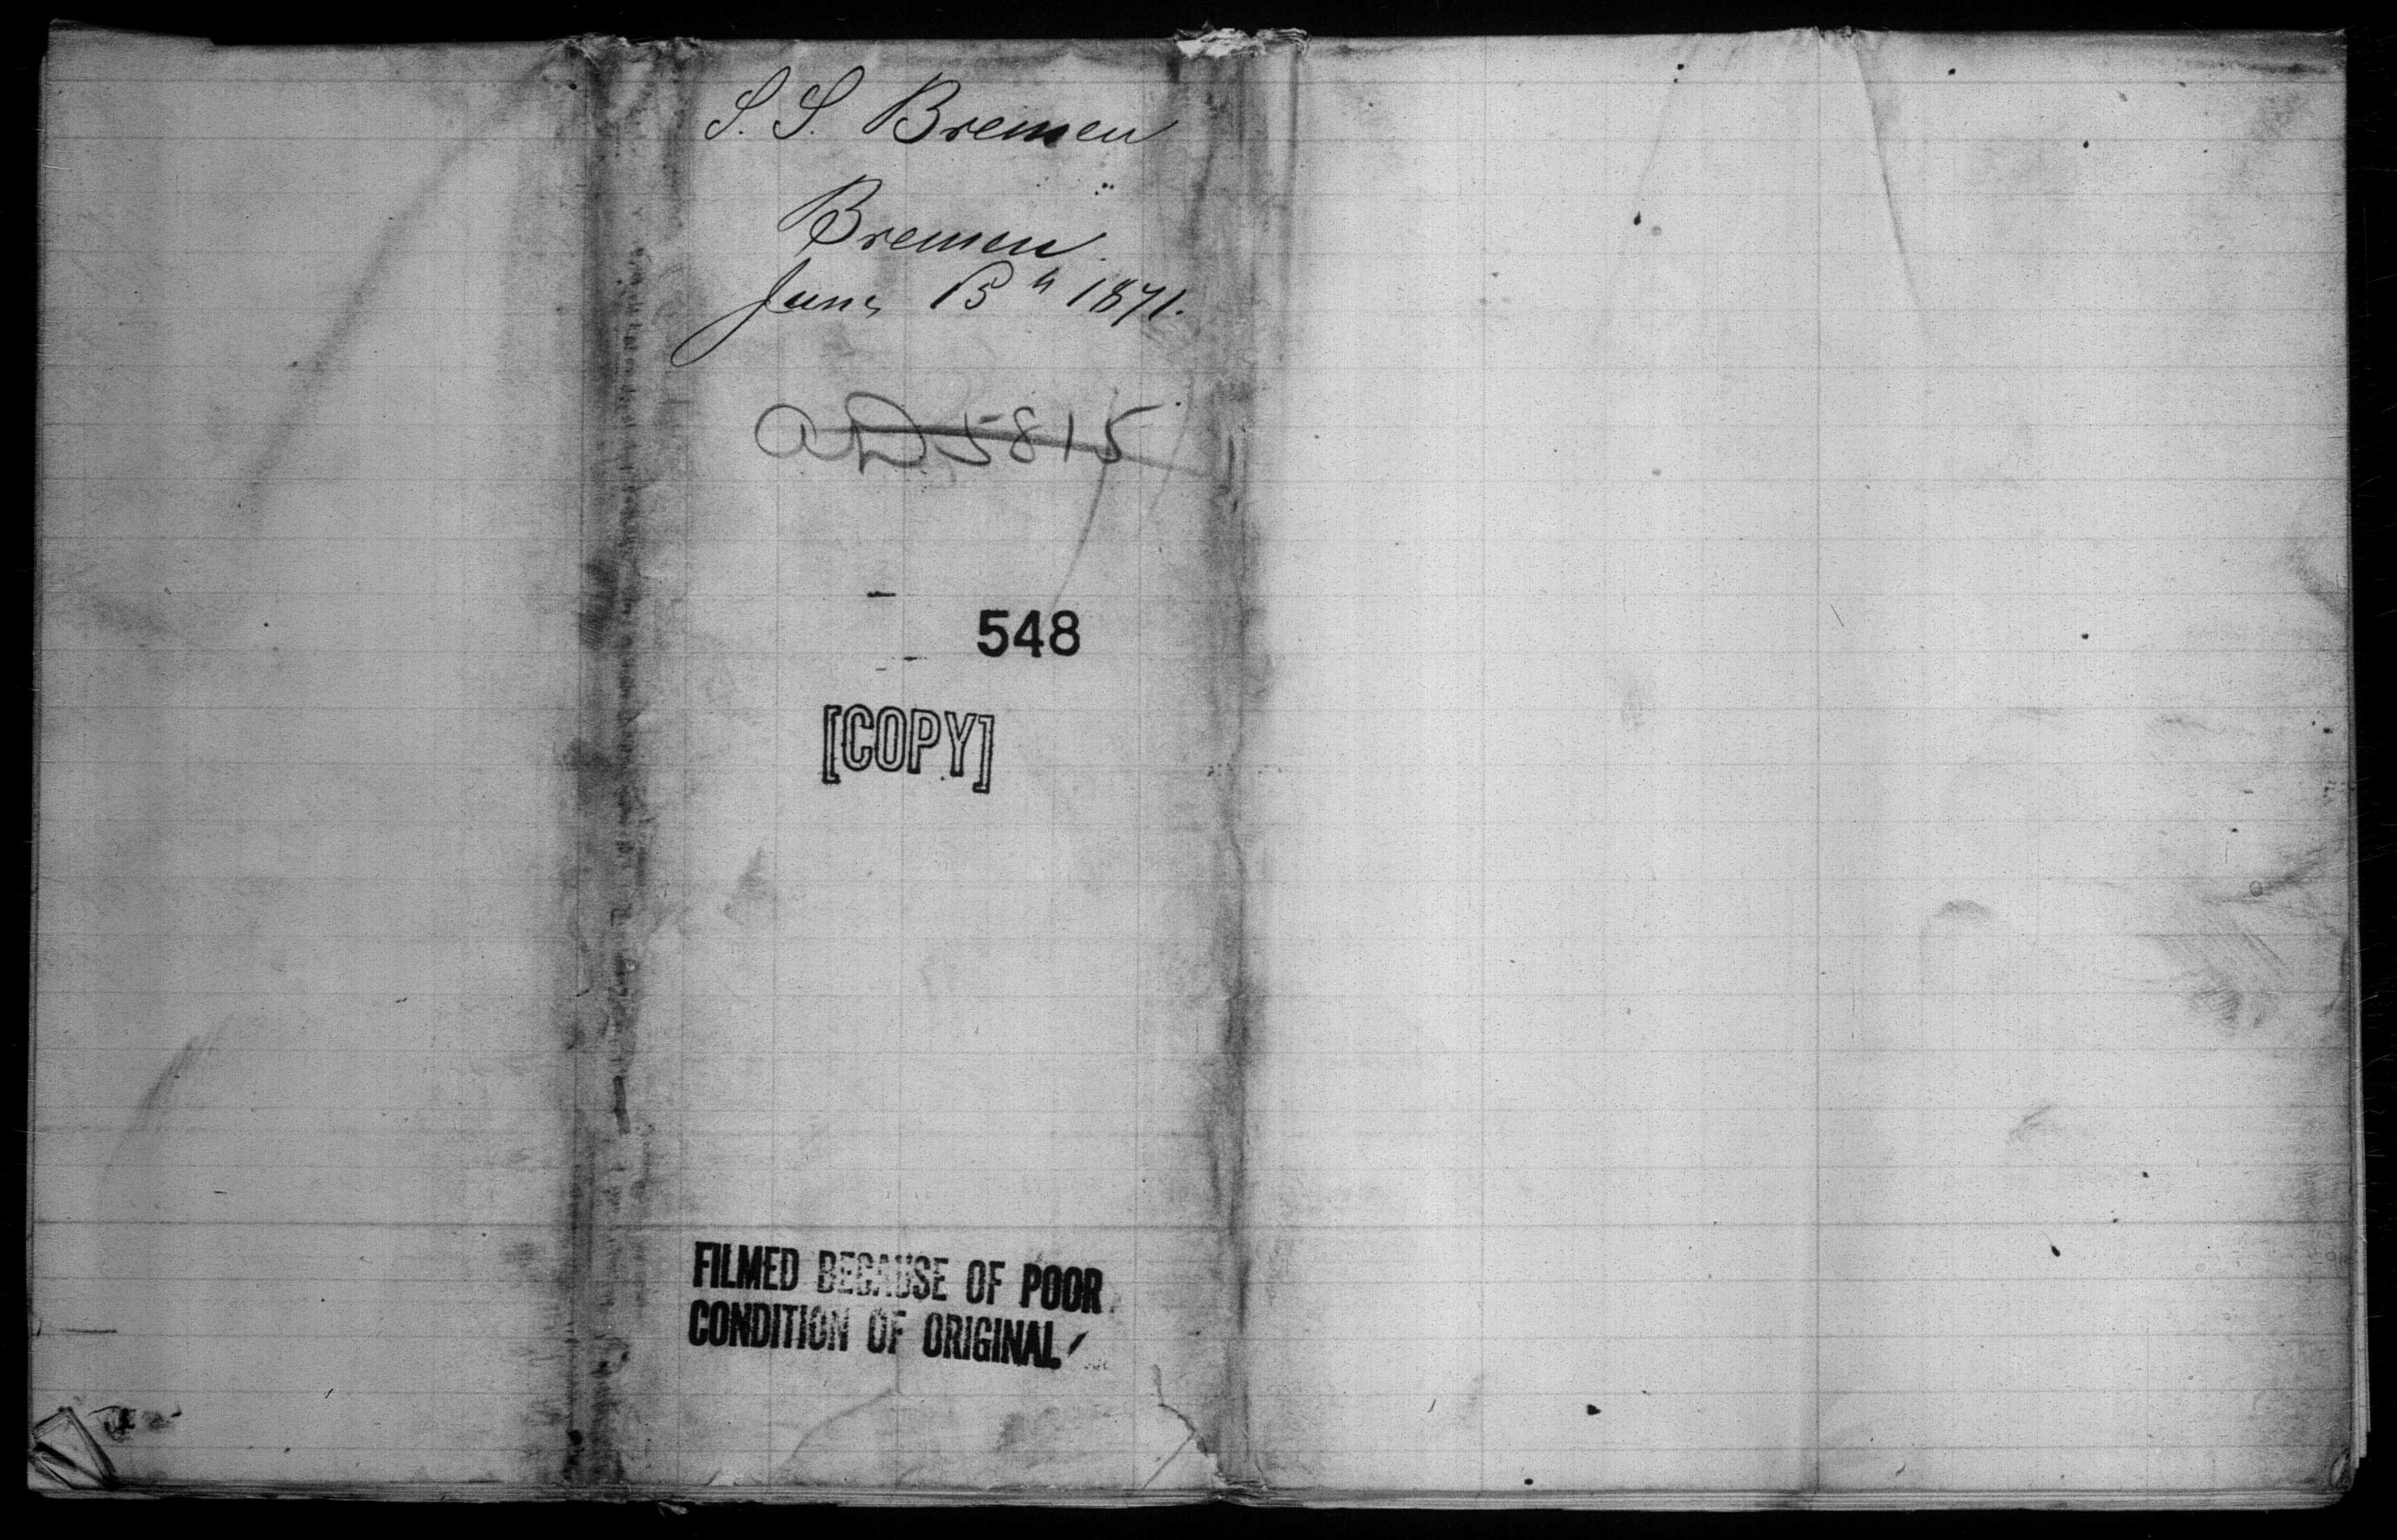 S. S. Bremen
Bremen.
June 15th 1871.
548
[COPY]
FILMED BECAUSE OF POOR
CONDITION OF ORIGINAL